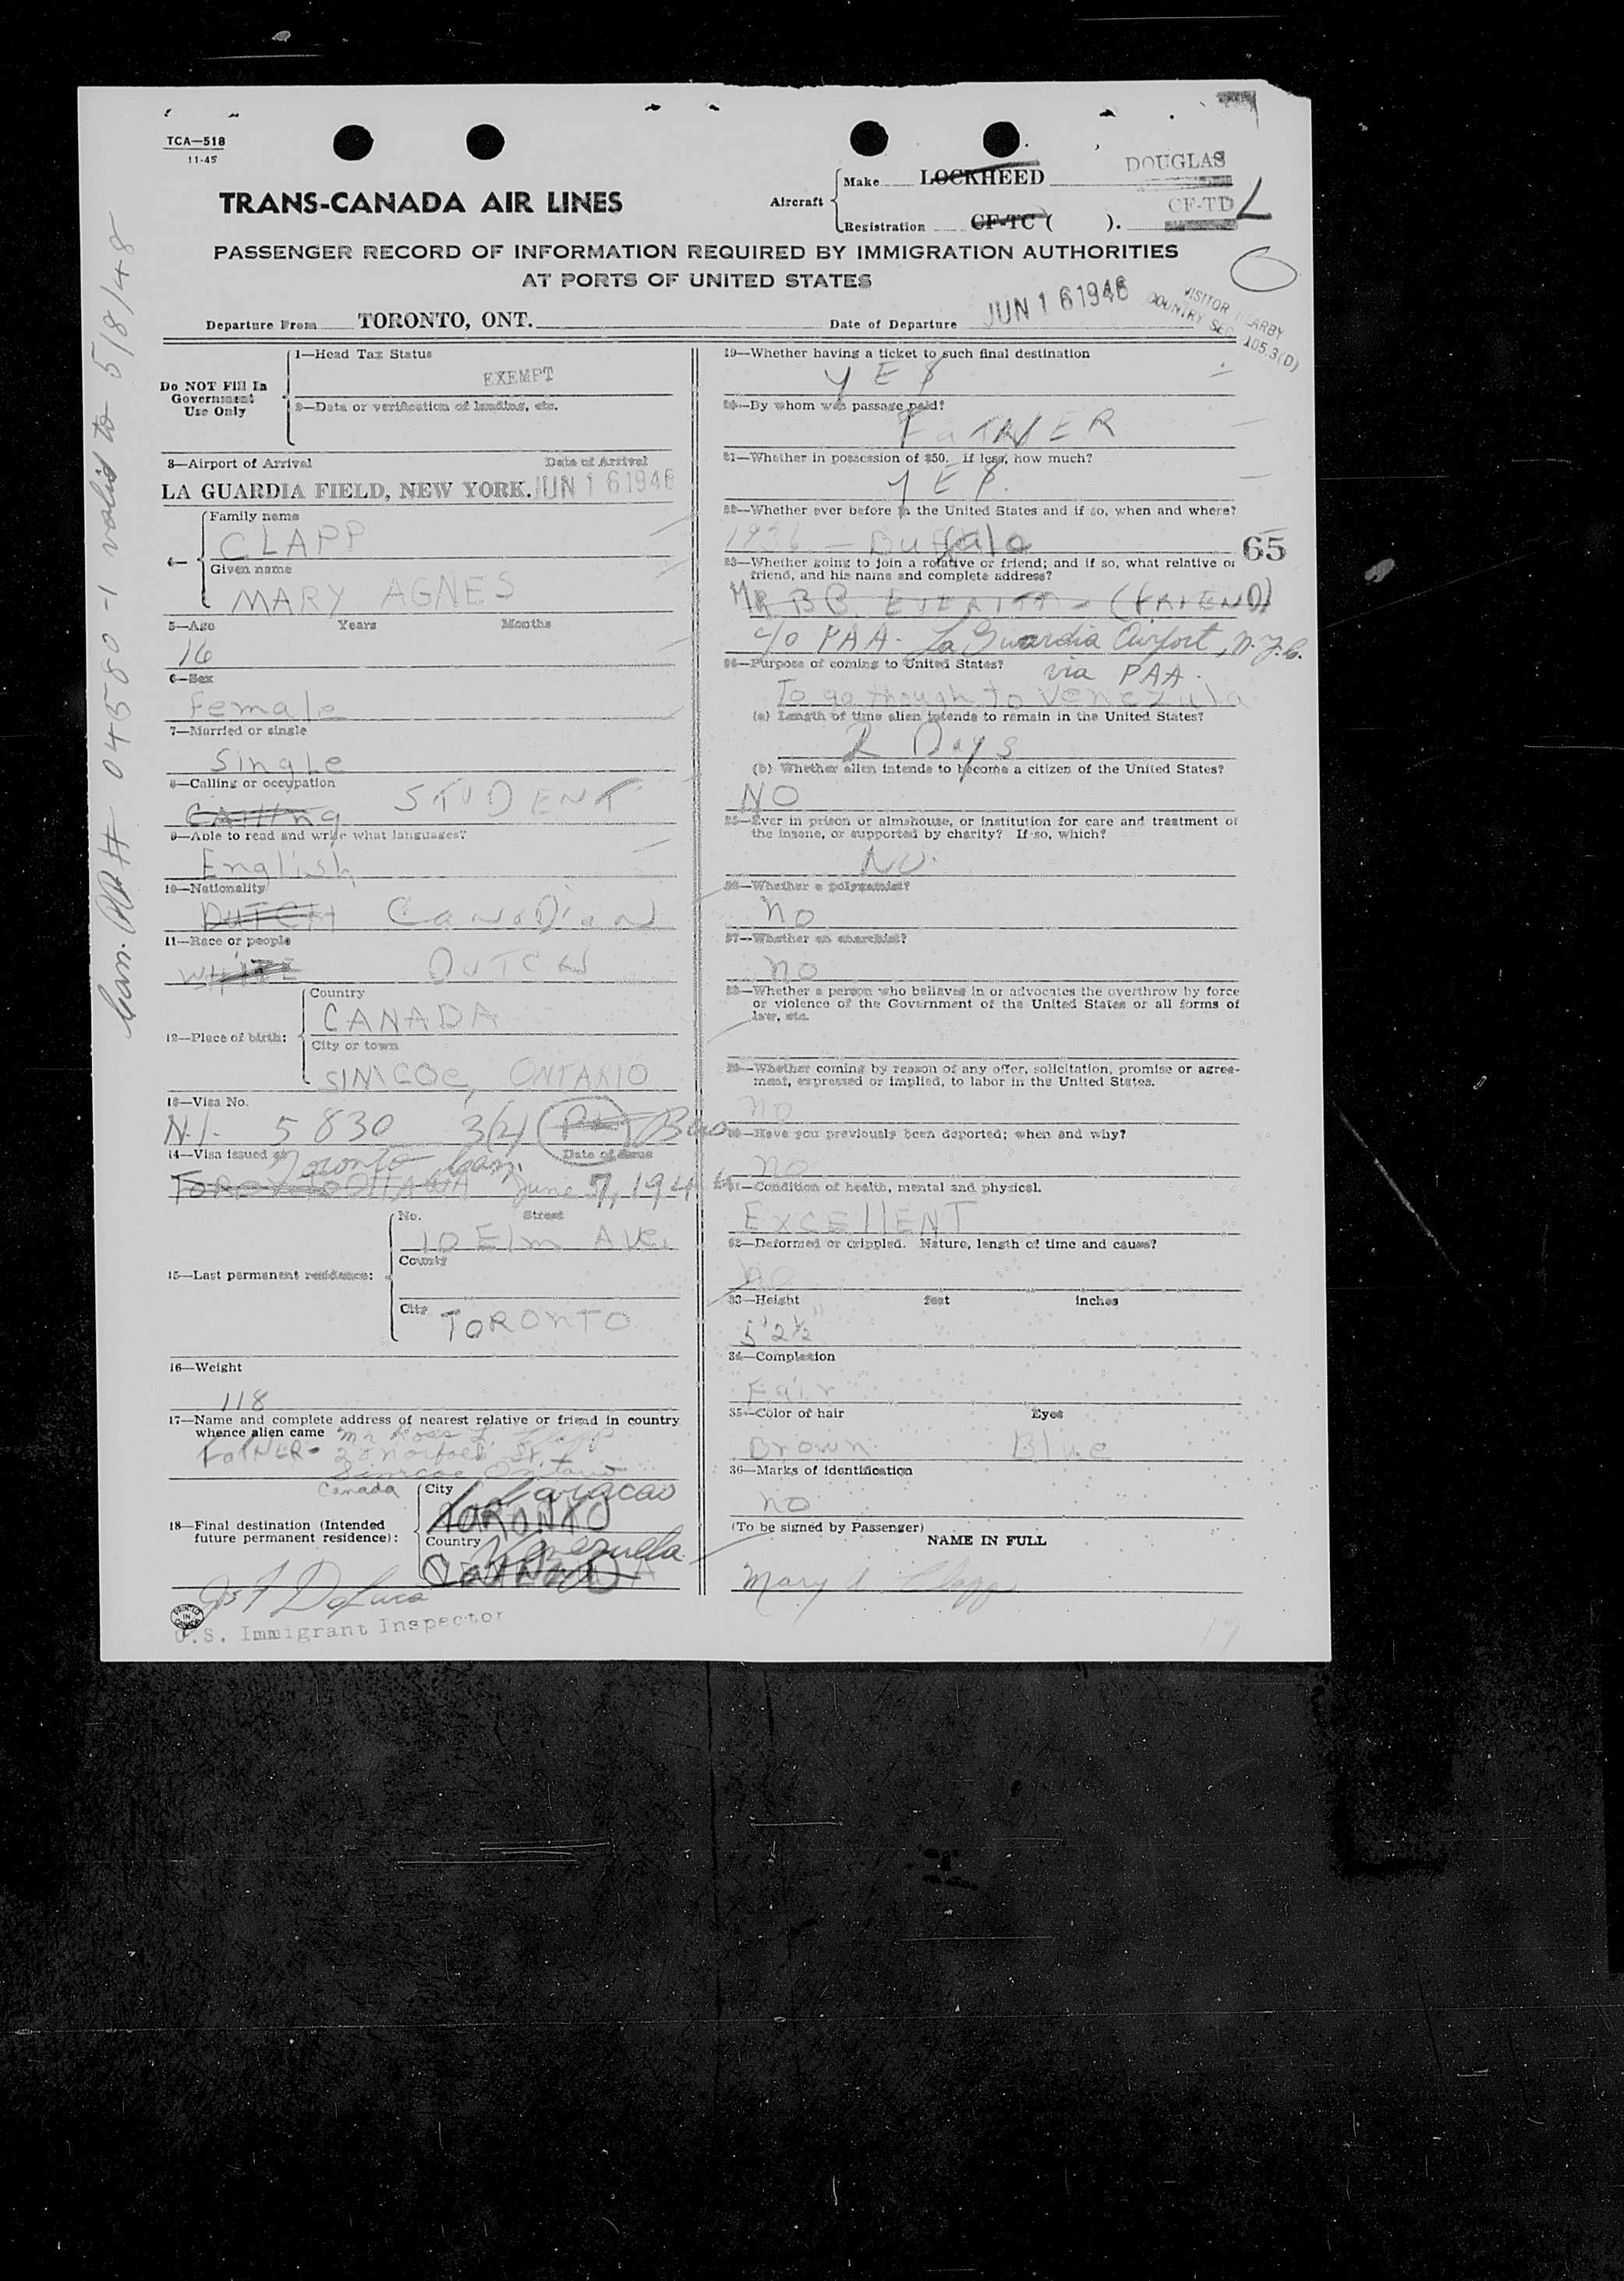 TCA—518
11-45
TRANS-CANADA AIR LINES
Aircraft
Make LOCKHEED DOUGLAS
Registration CF-TC ( ). CF-TD L
PASSENGER RECORD OF INFORMATION REQUIRED BY IMMIGRATION AUTHORITIES
AT PORTS OF UNITED STATES
Departure From TORONTO, ONT.
Date of Departure JUN 16 1946
VISITOR NEARBY
COUNTRY SEC 105.3(D)
Can. PP# 04580-1 valid to 5/8/48
Do NOT Fill In
Government
Use Only
1—Head Tax Status
EXEMPT
2—Data or verification of landing, etc.
3—Airport of Arrival Date of Arrival
LA GUARDIA FIELD, NEW YORK. JUN 16 1946
4—
Family name
CLAPP
Given name
MARY AGNES
5—Age Years Months
16
6—Sex
Female
7—Married or single
Single
8—Calling or occupation
Calling STUDENT
9—Able to read and write what languages?
English
10—Nationality
DUTCH CANADIAN
11—Race or people
WHITE DUTCH
12—Place of birth:
Country
CANADA
City or town
SIMCOE, ONTARIO
13—Visa No.
N.I. 5830 3(2)
14—Visa issued at Toronto Can. Date of Issue
TORONTO OTTAWA June 7, 194
15—Last permanent residence:
No. Street
10 Elm Ave.
County
City
TORONTO
16—Weight
118
17—Name and complete address of nearest relative or friend in country
whence alien came Mr Ross L. Clapp
FATHER- 28 Norfolk St.
Simcoe Ontario
Canada
18—Final destination (Intended
future permanent residence):
City
Caracas
TORONTO
Country
Venezuela
CANADA
Jos F DeLuca
U.S. Immigrant Inspector
PRINTED IN CANADA
19—Whether having a ticket to such final destination
YES
20—By whom was passage paid?
FATHER
21—Whether in possession of $50. if less, how much?
YES.
22—Whether ever before in the United States and if so, when and where?
1936 — Buffalo
65
23—Whether going to join a relative or friend; and if so, what relative or
friend, and his name and complete address?
MR BB. EVERITT - (FRIEND)
c/o PAA. La Guardia Airport, N.Y.C.
24—Purpose of coming to United States? via PAA.
To go through to Venezula
(a) Length of time alien intends to remain in the United States?
2 Days
(b) Whether alien intends to become a citizen of the United States?
NO
25—Ever in prison or almshouse, or institution for care and treatment of
the insane, or supported by charity? If so, which?
NO.
26—Whether a polygamist?
no
27—Whether an anarchist?
no
28—Whether a person who believes in or advocates the overthrow by force
or violence of the Government of the United States or all forms of
law, etc.
29—Whether coming by reason of any offer, solicitation, promise or agree-
ment, expressed or implied, to labor in the United States.
no
30—Have you previously been deported; when and why?
no
31—Condition of health, mental and physical.
EXCELLENT
32—Deformed or crippled. Nature, length of time and cause?
no
33—Height feet inches
5' 2½"
34—Completion
Fair
35—Color of hair Eyes
Brown Blue
36—Marks of identification
no
(To be signed by Passenger)
NAME IN FULL
Mary A. Clapp
17